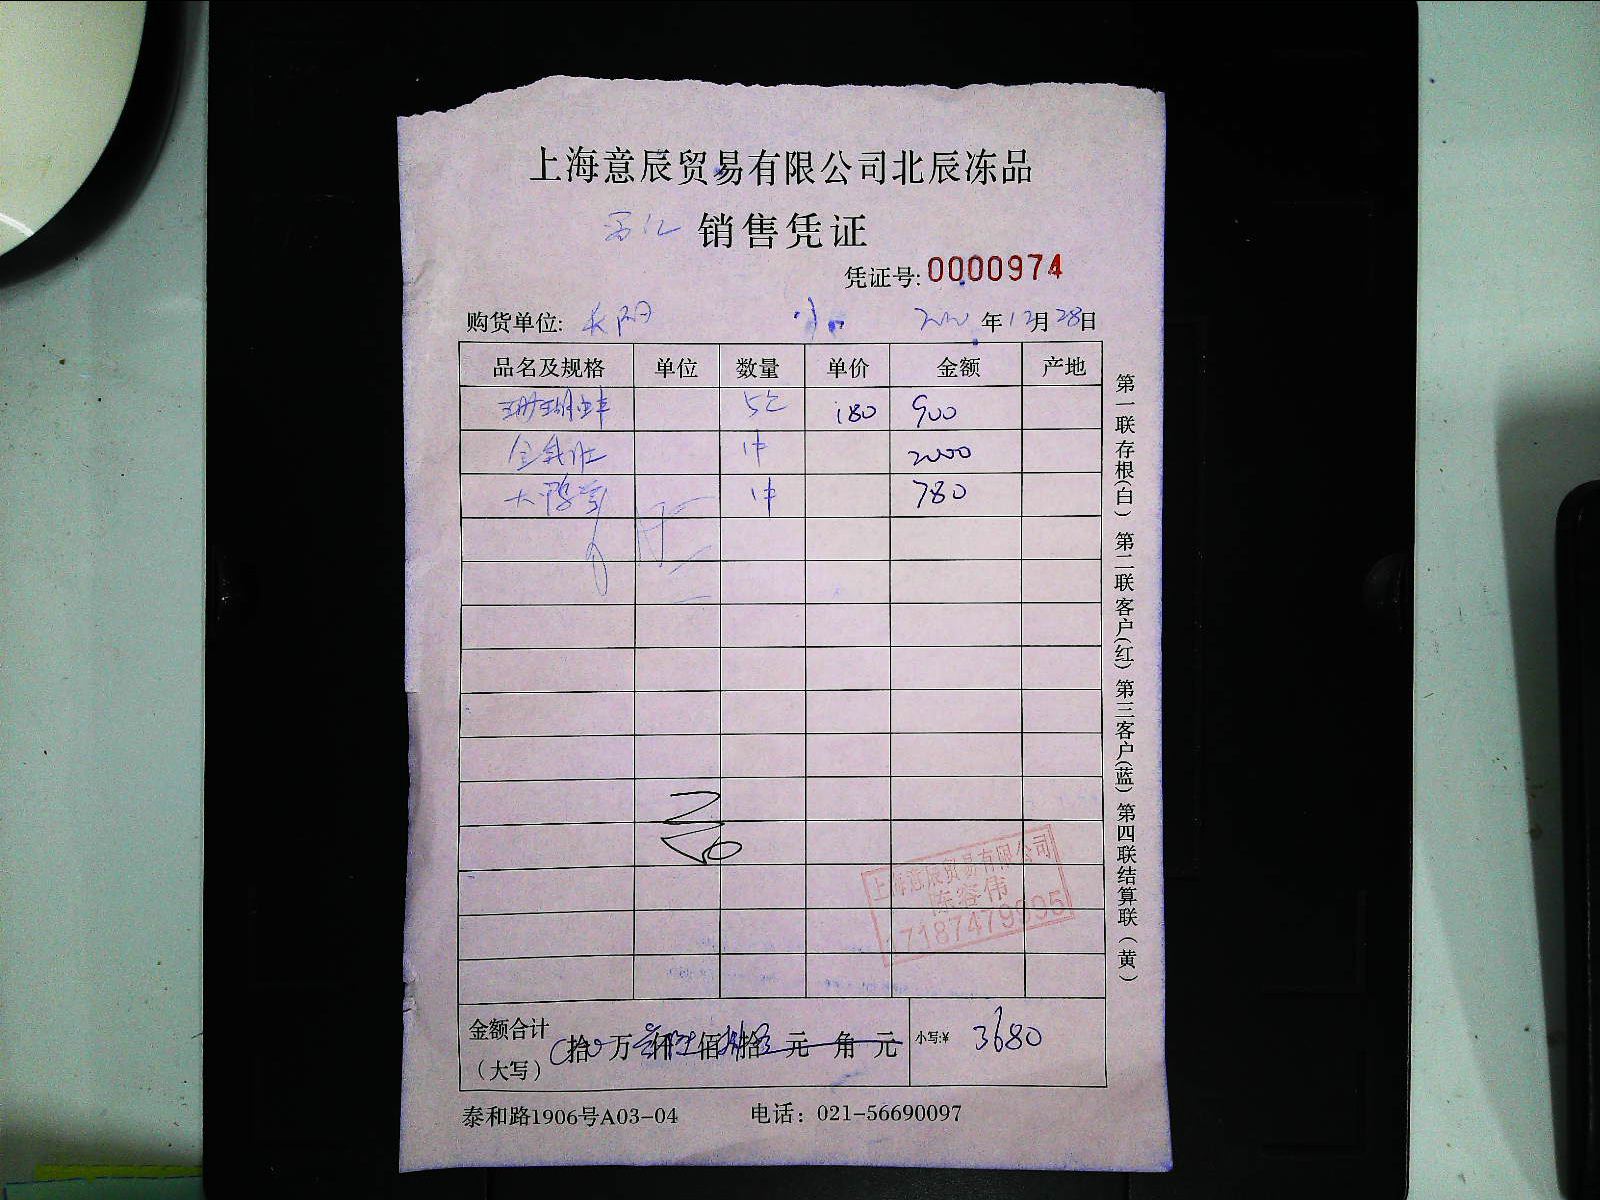 上海意辰贸易有限公司北辰冻品
销售凭证
凭证号: 0000974
购货单位: 年12月28日
品名及规格 单位 数量 单价 金额 产地
珊瑚蚌 180 900
1件 2000
大 1件 780
上海意辰贸易有限公司
陈容伟
金额合计 (大写) 拾 万 仟 佰 拾 元 角 元 小写:¥ 3680
泰和路1906号A03-04 电话: 021-56690097
第一联存根(白) 第二联客户(红) 第三客户(蓝) 第四联结算联(黄)